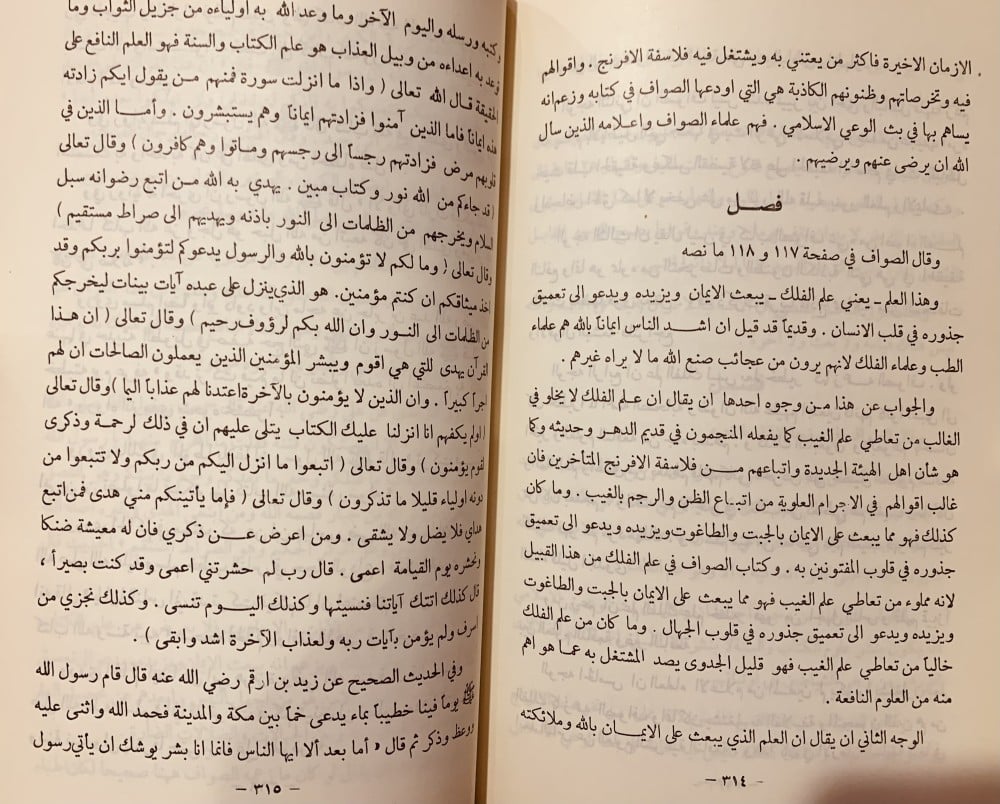 الازمان الاخيرة فاكثر من يعتني به ويشتغل فيه فلاسفة الافرنج . واقوالهم
فيه وتخرصاتهم وظنونهم الكاذبة هي التي اودعها الصواف في كتابه وزعم انه
يساهم بها في بث الوعي الاسلامي . فهم علماء الصواف واعلامه الذين سال
الله ان يرضى عنهم ويرضيهم .
فصل
وقال الصواف في صفحة ١١٧ و ١١٨ ما نصه
وهذا العلم ـ يعني علم الفلك ـ يبعث الايمان ويزيده ويدعو الى تعميق
جذوره في قلب الانسان . وقديماً قد قيل ان اشد الناس ايماناً بالله هم علماء
الطب وعلماء الفلك لانهم يرون من عجائب صنع الله ما لا يراه غيرهم .
والجواب عن هذا من وجوه احدها ان يقال ان علم الفلك لا يخلو في
الغالب من تعاطي علم الغيب كما يفعله المنجمون في قديم الدهر وحديثه وكما
هو شأن اهل الهيئة الجديدة واتباعهم من فلاسفة الافرنج المتأخرين فان
غالب اقوالهم في الاجرام العلوية من اتباع الظن والرجم بالغيب . وما كان
كذلك فهو مما يبعث على الايمان بالجبت والطاغوت ويزيده ويدعو الى تعميق
جذوره في قلوب المفتونين به . وكتاب الصواف في علم الفلك من هذا القبيل
لانه مملوء من تعاطي علم الغيب فهو مما يبعث على الايمان بالجبت والطاغوت
ويزيده ويدعو الى تعميق جذوره في قلوب الجهال . وما كان من علم الفلك
خالياً من تعاطي علم الغيب فهو قليل الجدوى يصد المشتغل به عما هو اهم
منه من العلوم النافعة .
الوجه الثاني ان يقال ان العلم الذي يبعث على الايمان بالله وملائكته
ـ ٣١٤ ـ
وكتبه ورسله واليوم الآخر وما وعد الله به اولياءه من جزيل الثواب وما
توعد به اعداءه من وبيل العذاب هو علم الكتاب والسنة فهو العلم النافع على
الحقيقة قال الله تعالى ( واذا ما انزلت سورة فمنهم من يقول ايكم زادته
هذه ايماناً فاما الذين آمنوا فزادتهم ايماناً وهم يستبشرون . وأما الذين في
قلوبهم مرض فزادتهم رجساً الى رجسهم وماتوا وهم كافرون ) وقال تعالى
( قد جاءكم من الله نور وكتاب مبين . يهدي به الله من اتبع رضوانه سبل
السلام ويخرجهم من الظلمات الى النور باذنه ويهديهم الى صراط مستقيم )
وقال تعالى ( وما لكم لا تؤمنون بالله والرسول يدعوكم لتؤمنوا بربكم وقد
اخذ ميثاقكم ان كنتم مؤمنين. هو الذي ينزل على عبده آيات بينات ليخرجكم
من الظلمات الى النور وان الله بكم لرؤوف رحيم ) وقال تعالى ( ان هذا
القرآن يهدي للتي هي اقوم ويبشر المؤمنين الذين يعملون الصالحات ان لهم
اجراً كبيراً . وان الذين لا يؤمنون بالآخرة اعتدنا لهم عذاباً اليما ) وقال تعالى
( اولم يكفهم انا انزلنا عليك الكتاب يتلى عليهم ان في ذلك لرحمة وذكرى
لقوم يؤمنون ) وقال تعالى ( اتبعوا ما انزل اليكم من ربكم ولا تتبعوا من
دونه اولياء قليلا ما تذكرون ) وقال تعالى ( فإما يأتينكم مني هدى فمن اتبع
هداي فلا يضل ولا يشقى . ومن اعرض عن ذكري فان له معيشة ضنكا
ونحشره يوم القيامة اعمى . قال رب لم حشرتني اعمى وقد كنت بصيراً ،
قال كذلك اتتك آياتنا فنسيتها وكذلك اليوم تنسى . وكذلك نجزي من
اسرف ولم يؤمن بآيات ربه ولعذاب الآخرة اشد وابقى ) .
وفي الحديث الصحيح عن زيد بن ارقم رضي الله عنه قال قام رسول الله
ﷺ يوماً فينا خطيباً بماء يدعى خماً بين مكة والمدينة فحمد الله واثنى عليه
ووعظ وذكر ثم قال « أما بعد ألا ايها الناس فانما انا بشر يوشك ان يأتي رسول
ـ ٣١٥ ـ